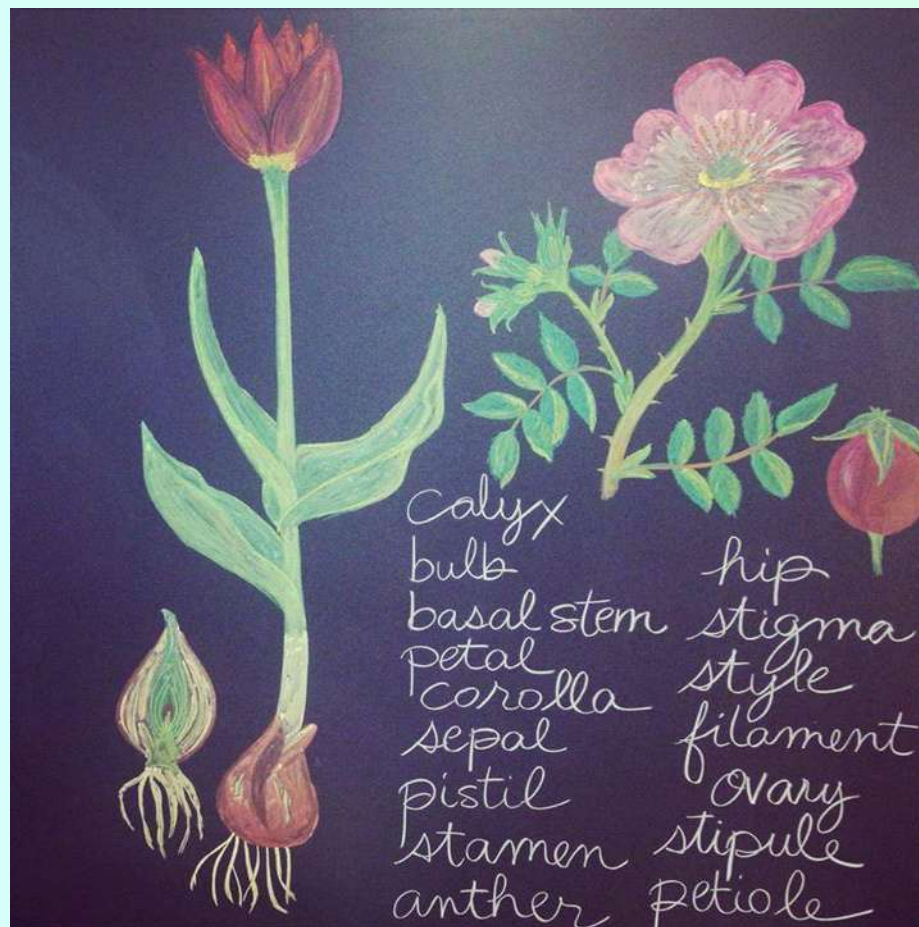 Calyx
bulb
basal stem
petal
corolla
sepal
pistil
stamen
anther
hip
stigma
style
filament
ovary
stipule
petiole